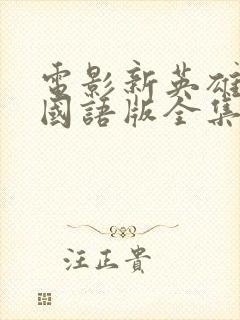 電影新英雄
國語版全集
汪正貴